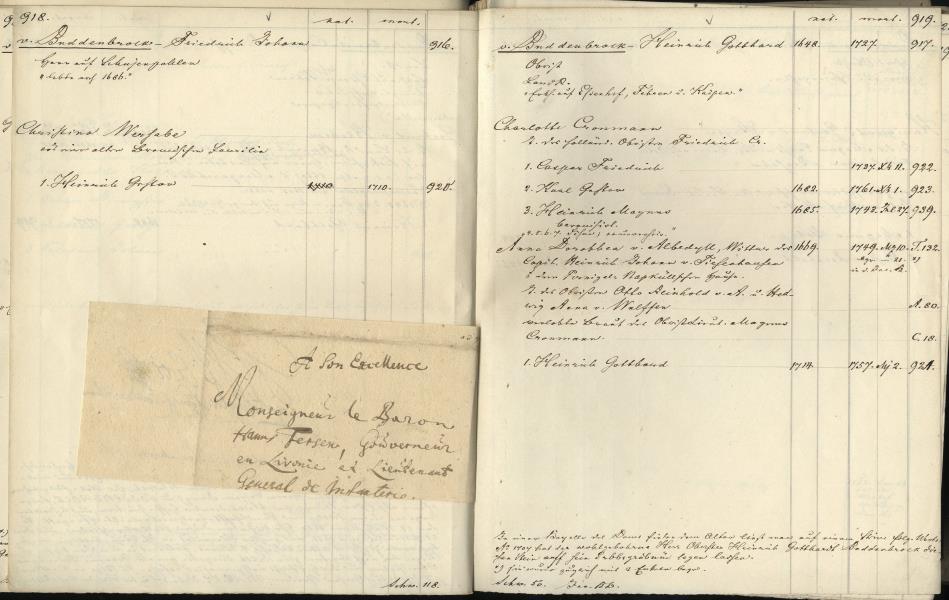 918.
nat. mort.
v. Buddenbrock - Friedrich Johann 916.
Herr auf Schujenpahlen
"lebte auf 1686."
Christina Wersabe
aus einer alten Bremischen Familie
1. Heinrich Gustav 1710. 920.
Schw. 118.
A Son Excellence
Monseigneur le Baron
Hans Fersen, Gouverneur
en Livonie et Lieutenant
General de Infanterie.
nat. mort. 919.
v. Buddenbrock - Heinrich Gotthard 1648. 1727. 917.
Obrist
LandR.
Charlotte Cronmann
T. des holländ. Obristen Friedrich Cr.
1. Caspar Friedrich 1737. 922.
2. Karl Gustav 1682. 1761. 1. 923.
3. Heinrich Magnus 1685. 1743. Jul 27. 939.
Anna Dorothea v. Albedyll, Wittwe des 1669. 1749. 10. T. 132.
Capit. Heinrich Johann v. Tiesenhausen
T. des Obristen Otto Reinhold v. A. u. Hed-
wig Anna v. Wulffen A. 80.
verlobte Braut des ObristLieut. Magnus
Cronmann. C. 18.
1. Heinrich Gotthard 1714. 1757. 2. 924.
In einer Kapelle des Doms hinter dem Altar liest man auf einem Stein folg. Worte
Ao 1707 hat der wohlgebohrne Herr Obrister Heinrich Gotthardt Buddenbrock
Stein auff sein Erbbegräbnis legen lassen.
Schw. 56.